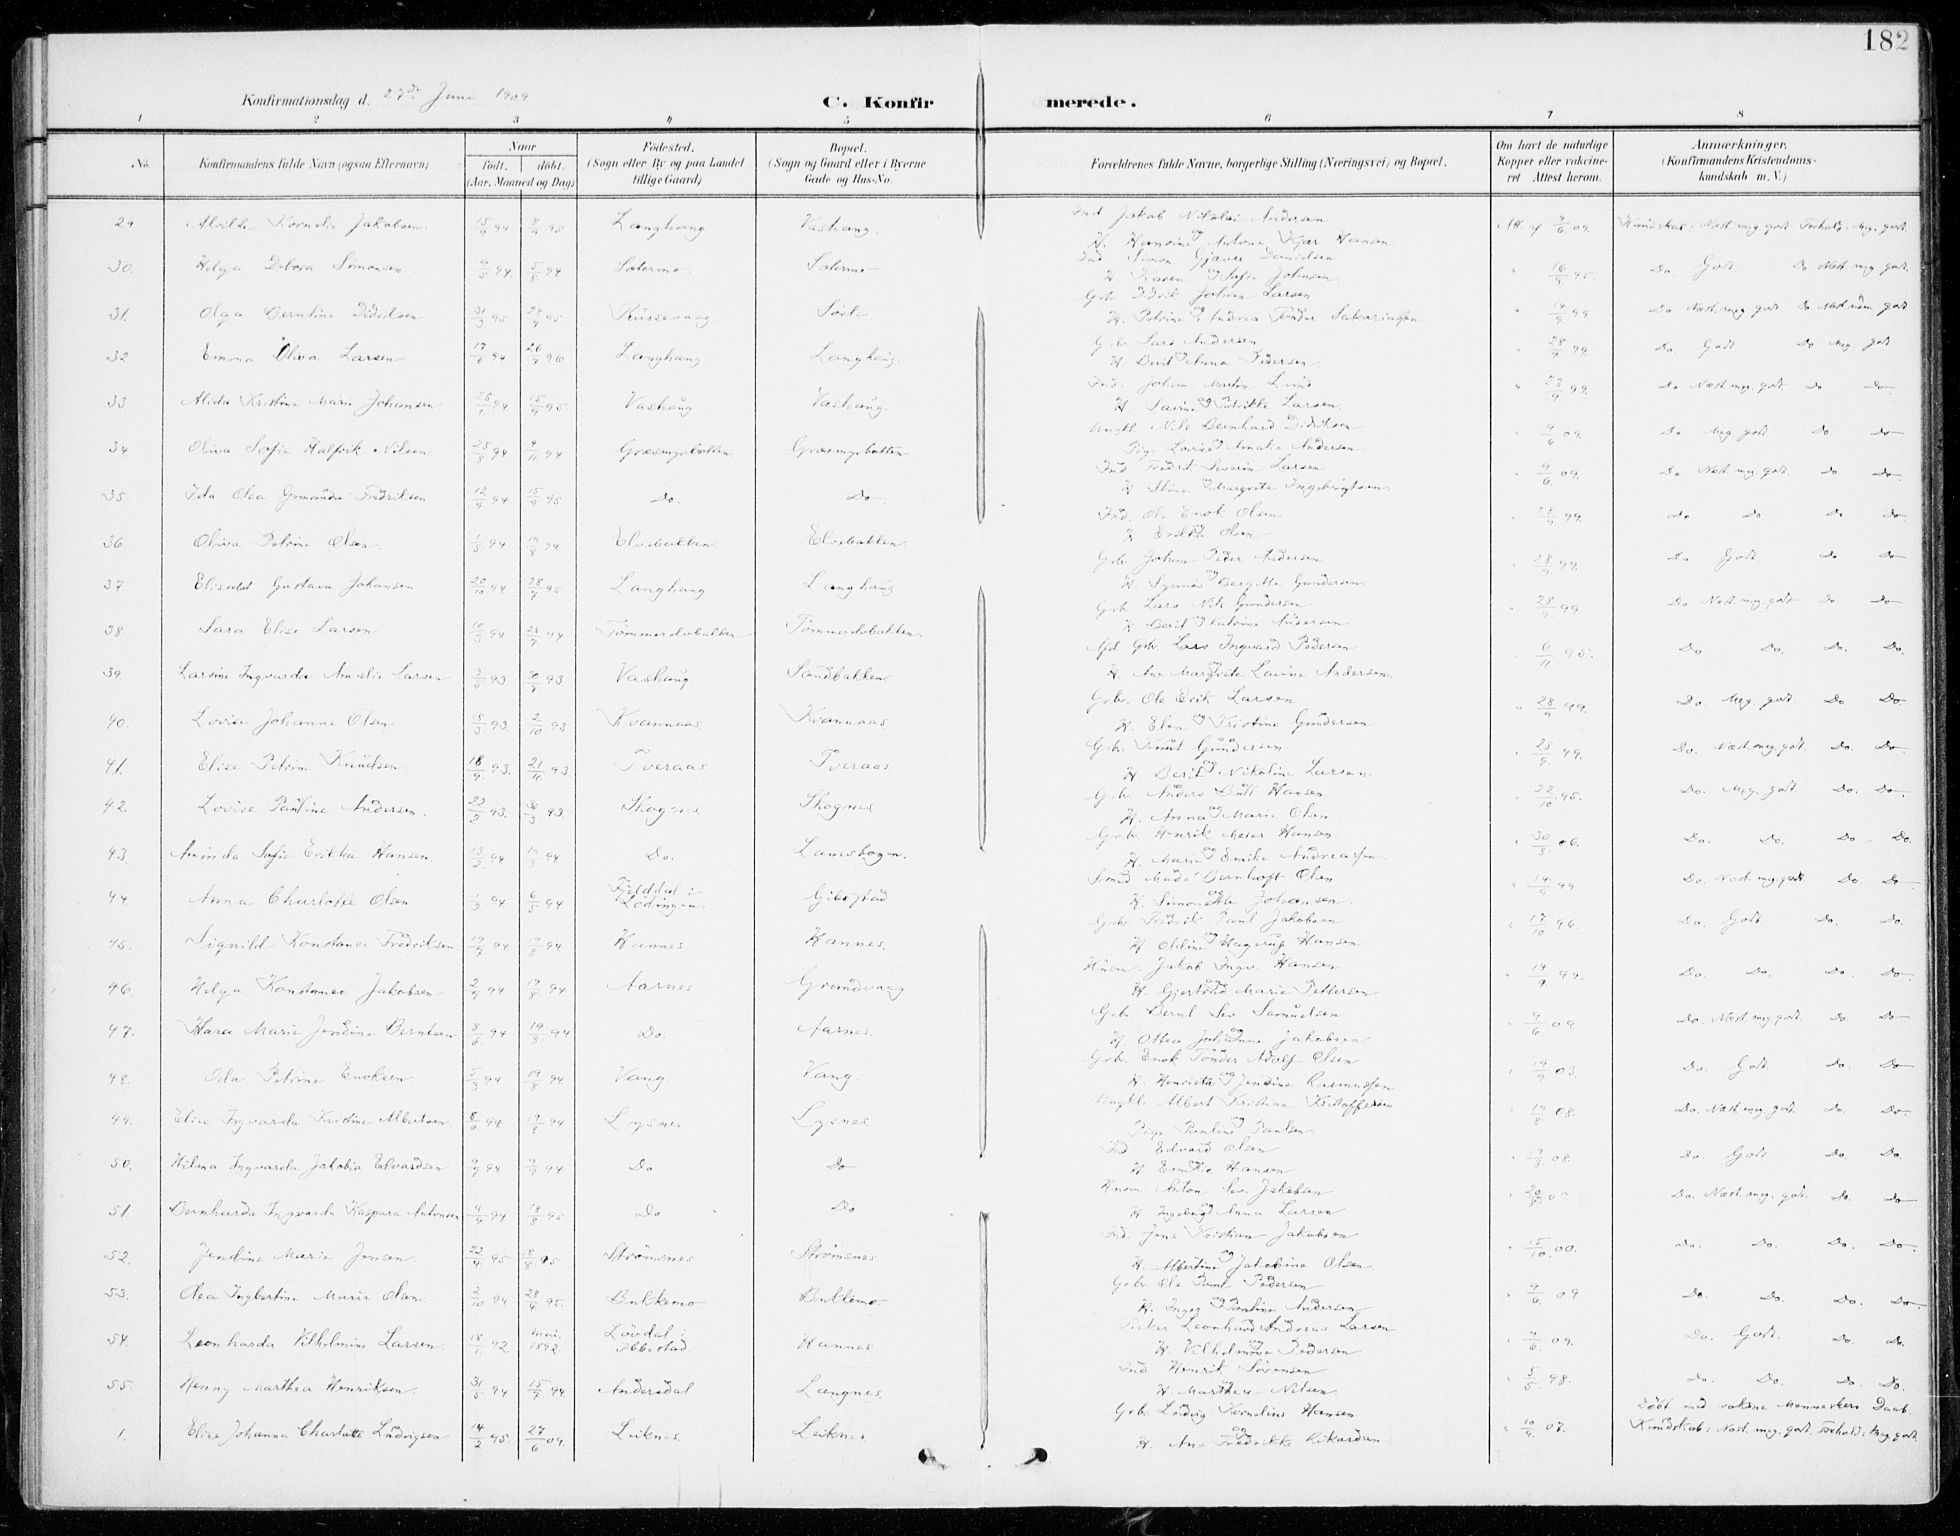 182
Konfirmationsdag d. 27de Juni 1909
C. Konfirmerede.
1 2 3 4 5 6 7 8
No. Konfirmandens fulde Navn (ogsaa Efternavn) Naar født. døbt. (Aar, Maaned og Dag) Fødested. (Sogn eller By og paa Landet tillige Gaard) Bopæl. (Sogn og Gaard eller i Byerne Gade og Hus-No. Forældrenes fulde Navne, borgerlige Stilling (Næringsvei) og Bopæl. Om havt de naturlige Kopper eller vakcineret. Attest herom. Anmærkninger. (Konfirmandens Kristendomskundskab m. V.)
29 Alvilde Kornelie Jakobsen. 94 95 Langhaug Vashaug. Ind Jakob Nikolai Andersen
H. Hansine Antone Kjær Hansen 09. Kundskab: Næst meg. godt Forhold: Meg. godt.
30. Helga Debora Simonsen 94 5/8 94 Sætermo Sætermo Ind Simon Gjæver Danielsen
H. Karen Sofie Johnsen 16/9 95. Do Godt. Do Næst meg godt.
31. Olga Berntine Didriksen 31/3 95 95. Russevaag. Gbr Didrik Johan Larsen
H. Petrine Andrea Tønder Sakariassen 14/9 99 Do Næst meg godt Do
32 Emma Oliva Larsen 17/6 94 26/7 96 Langhaug Langhaug. Gbr Lars Andersen
H Berit Anna Pedersen 28/9 99. Do Godt Do Meg. godt
33 Alida Kristine Marie Johansen. 94 15/9 95. Vashaug Vashaug. Ind. Johan Martin Lund
Larsen. 99. Do Næst meg. godt do do
34 Oliva Sofie Nilsen 25/8 94 4/11 94 Græsmyrbotten. Græsmyrbotten Ungkl Nils Bernhard Didriksen
Pige Lovise Amalie Andersen 9/6 09. Do Meg godt Do. do
35 Ida Olea Fredriksen 12/9 94 15/9 95 Do. Do Ind Fredr. Severin Larsen
H Stine Margrete Ingebrigtsen. 9/6 09. Do Næst meg. godt. do do
36. Oliva Petrine Olsen. 1/5 94 19/8 94 Elvebakken Elvebakken. Ind. Ole Enok Olsen
Olsen 99. do Do do Do
37. Elisabet Gustava Johansen 20/10 94 28/7 95. Langhaug Langhaug Gbr Johan Peder Andersen
H. Bergitte Gundersen 28/9 99. Do Godt Do Do
38 Sara Elise Larsen 10/3 94 28/7 94 Tømmerelvbakken Tømmerelvbakken. Gbr Lars Nils Gundersen
H Berit Katrine Andersen 28/9 99. Do Næst meg godt Do do
39 Larsine Ingvarda Amalie Larsen 3/5 93 30/7 93 Vashaug Sandbakken. Gbr. Lars Ingvard Pedersen
H. Ane Margrete Lavine Andersen. 6/11 95. Do Do. Do. Do.
40. Lovise Johanne Olsen 18/3 93. 2/10 93 Kvannaas. Kvannaas Gbr. Ole Erik Larsen
H. Elen Kristine Gundersen 28/9 99. Do. Meg. godt. Do Do
41. Elise Petrine Knudsen. 18/9 93. 21/11 93 Tveraas Tveraas. Gbr. Knut Gundersen
H Berit Nikoline Larsen. 99. Do. Næst. meg. godt. Do Do
42. Lovise Pauline Andersen. 93. 93. Skognes. Skognes Gbr. Anders Bull Hansen
H. Anna Marie Olsen 22/10 95. Do. Meg. godt. Do. Do
43. Aminda Sofie Erikka Hansen. 13/2 94 19/8 94 Do. Lanesbogen. Gbr. Henrik Meier Hansen
H. Marie Emilie Andreassen. 30/8 06. Do. Do. Do Do.
44. Anna Charlotte Olsen 94 6/5 94 Fjelddal i Lødingen. Gibostad Smed Mads Bernhoft Olsen
H. Simonette Johansen. 14/9 99 Do. Næst meg. godt Do. Do.
45. Signild Konstance Fredriksen 19/7 94 19/8 94 Hannes Hannes. Gbr. Fredrik Paul Jakobsen
H. Oldine Hagerup Hansen 17/10 96. Do. Godt Do. Do.
46. Helga Konstance Jakobsen 94 19/8 94 Aarnes Grundvaag Husm. Jakob Ingv. Hansen
H. Gjertrud Marie Pettersen 99. Do. Do. Do. Do
47. Hara Marie Jendine Berntsen 8/6 94 19/8 94 Do. Aarnes. Gbr. Bernt Sev Samuelsen
H Ottea Johanne Jakobsen 9/6 09 Do. Næst. meg. godt. Do Do
48. Oda Petrine Enoksen. 5/3 94 19/8 94 Vang. Vang. Gbr. Enok Tønder Adolf Olsen
H. Henriette Jendine Rasmussen. 03. Do. Godt. Do. Do
49. Elise Ingvarda Kristine Albertsen 8/6 94 19/8 94 Lysnes Lysnes. Ungkl. Albert Kristian Kristoffersen
Pige Pauline Paulsen. 08. Do. Næst. meg. godt. Do. Do.
50. Hilma Ingvarda Jakobia Edvardsen 94 94 Do. Do Ind. Edvard Olsen
H Emilie Hansen 08. Do. Godt Do Do.
51 Bernharda Ingvarda Kaspara Antonsen 94 18/8 95 Do Do Husm. Anton Sev Jakobsen
H. Ingeborg Anna Larsen Do. Næst. meg. godt. Do. Do
52. Jendine Marie Jensen. 22/4 95 18/8 95 Strømsnes Strømsnes Ind. Jens Kristian Jakobsen
H. Albertine Jakobine Olsen. 15/10 00. Do. Do. Do. Do.
53. Olea Ingbertine Marie Olsen. 2/10 94 28/9 95. Bukkemo Bukkemo Gbr. Ole Pedersen
H. Inger Pauline Andersen 9/6 09 Do. Do. Do. Do.
54. Leonharda Vilhelmine Larsen. 18/1 92. Mai. 1892. Løvdal i Ibbestad. Hannes Fisker Leonhard Andreas Larsen
H. Vilhelmine Pedersen. 9/6 09. Do. Godt. Do. Do.
55. Henny Marthea Henriksen. 31/5 94 15/7 94 Andersdal Længnes. Ind Henrik Sørensen
H. Marthea Nilsen. 5/5 98. Do. Do. Do. Do.
1. Elise Johanna Charlotte Ludvigsen. 14/2 95. 27/6 09. Leiknes. Leiknes Gbr. Ludvig Kornelius Hansen
H. Ane Fredrikke Rikardsen 10/9 07. Døbt med voksne Menneskers Daab.
Kundskab: Næst. meg. godt. Forhold: Meg godt.